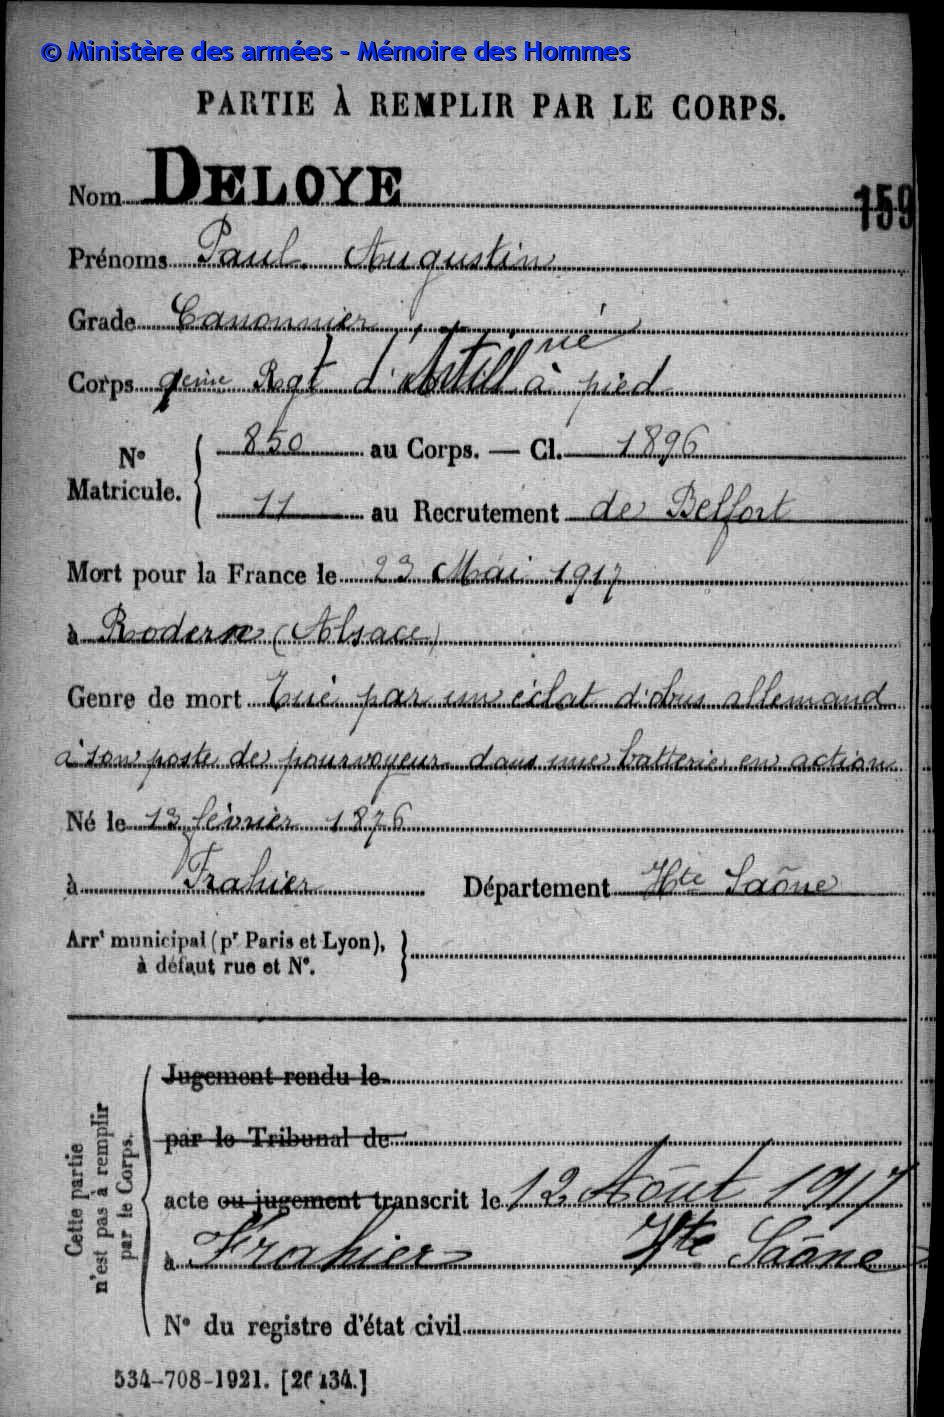 © Ministère des armées - Mémoire des Hommes
PARTIE À REMPLIR PAR LE CORPS.
Nom DELOYE
159
Prénoms Paul Augustin
Grade Canonnier
Corps 9eme Rgt d'Artillrie à pied
N° Matricule. 850 au Corps. — Cl. 1896
11 au Recrutement de Belfort
Mort pour la France le 23 Mai 1917
à Rodern (Alsace)
Genre de mort Tué par un éclat d'obus allemand
à son poste de pourvoyeur dans une batterie en action
Né le 13 février 1876
à Frahier Département Hte Saône
Arrt municipal (pr Paris et Lyon),
à défaut rue et N°.
Cette partie
n'est pas à remplir
par le Corps.
Jugement rendu le
par le Tribunal de
acte ou jugement transcrit le 12 Août 1917
à Frahier Hte Saône
N° du registre d'état civil
534-708-1921. [26434.]